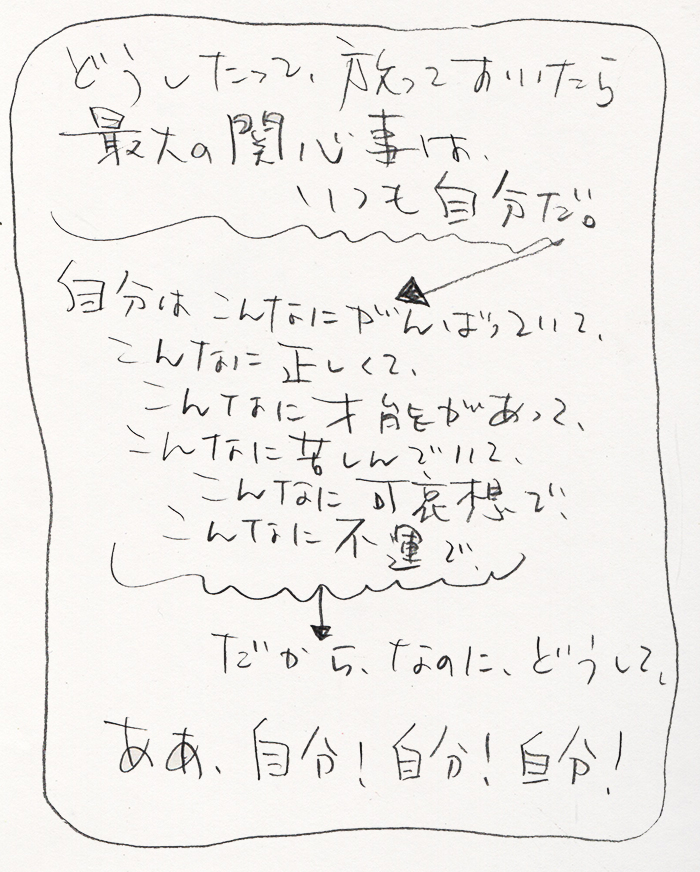 どうしたって、放っておいたら
最大の関心事は、
いつも自分だ。
自分はこんなにがんばっていて、
こんなに正しくて、
こんなに才能があって、
こんなに苦しんでいて、
こんなに可哀想で、
こんなに不運で、
だから、なのに、どうして、
ああ、自分!自分!自分!